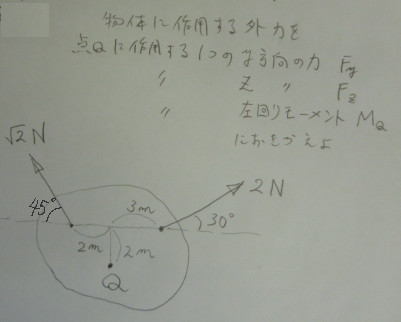 物体に作用する外力を
点Qに作用する1つのy方向の力 Fy
〃 Z 〃 Fz
〃 左回りモーメント MQ
におきかえよ
√2 N
45°
3m
2N
30°
2m
2m
Q